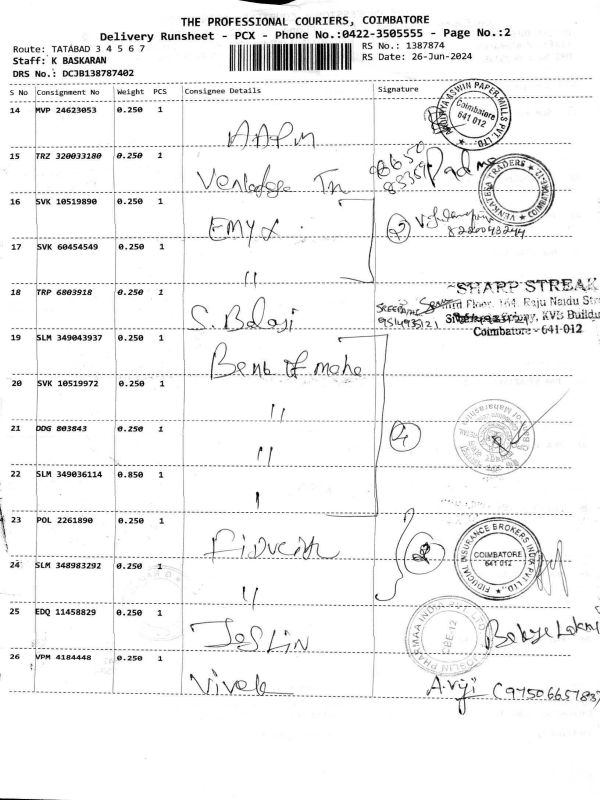 THE PROFESSIONAL COURIERS, COIMBATORE
Delivery Runsheet - PCX - Phone No.:0422-3505555 - Page No.:2
Route: TATABAD 3 4 5 6 7
RS No.: 1387874
Staff: K BASKARAN
RS Date: 26-Jun-2024
DRS No.: DCJB138787402
S No Consignment No Weight PCS Consignee Details Signature
14 MVP 24623053 0.250 1
ASWIN PAPER MILLS PVT. LTD.
Coimbatore
641 012
15 TRZ 320033180 0.250 1
VENKATESA TRADERS
COIMBATORE-12
16 SVK 10519890 0.250 1 EMYX
2
8220043244
17 SVK 60454549 0.250 1 "
18 TRP 6803918 0.250 1 S. Balaji
SHARP STREAK
Floor, 164, Raju Naidu Str
KVB Buildi
Coimbatore - 641 012
19 SLM 349043937 0.250 1 Bank of maha
20 SVK 10519972 0.250 1 "
21 DDG 803843 0.250 1 "
4
22 SLM 349036114 0.850 1
23 POL 2261890 0.250 1
2
FIDUCIAL INSURANCE BROKERS INDIA PVT. LTD.
COIMBATORE
641 012
24 SLM 348983292 0.250 1 "
25 EDQ 11458829 0.250 1 JOSLIN
JOSLIN PHARMAA INDIA PVT LTD
CBE-12
26 VPM 4184448 0.250 1 Vivek
A. Viji (9750665783